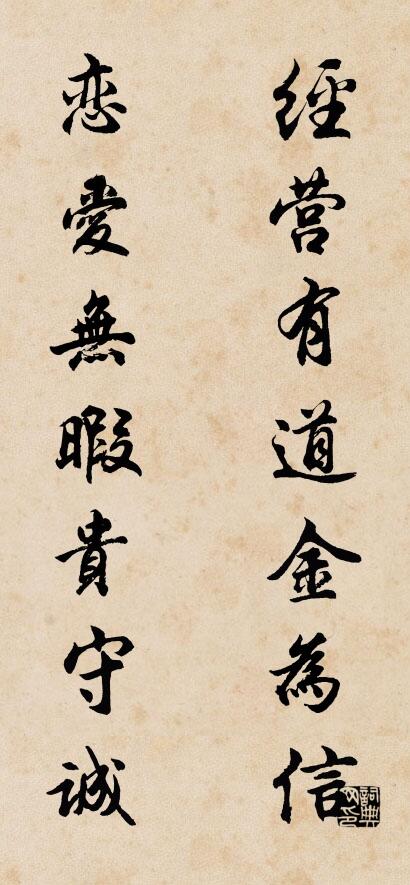 經营有道金為信
恋愛無暇貴守誠
詞典